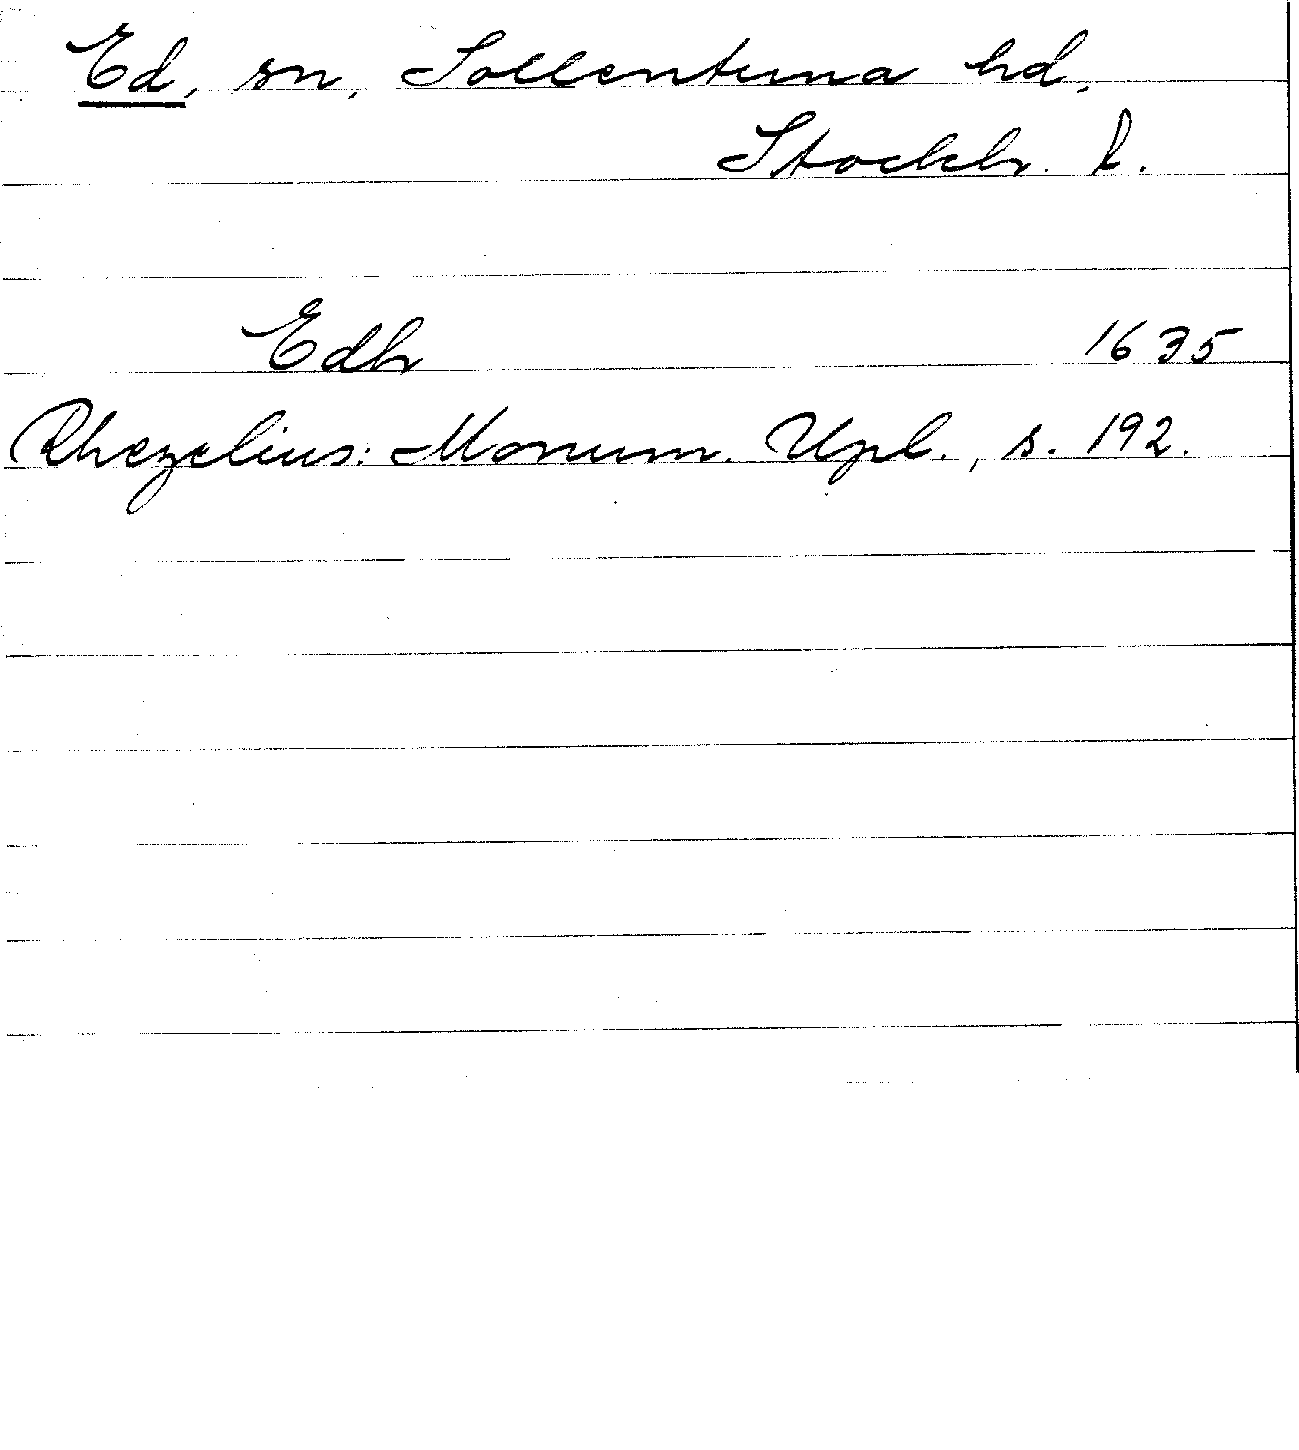 Ed, sn, Sollentuna hd,
Stockh. l.
Edh 1635
Rhezelius: Monum. Upl., s. 192.